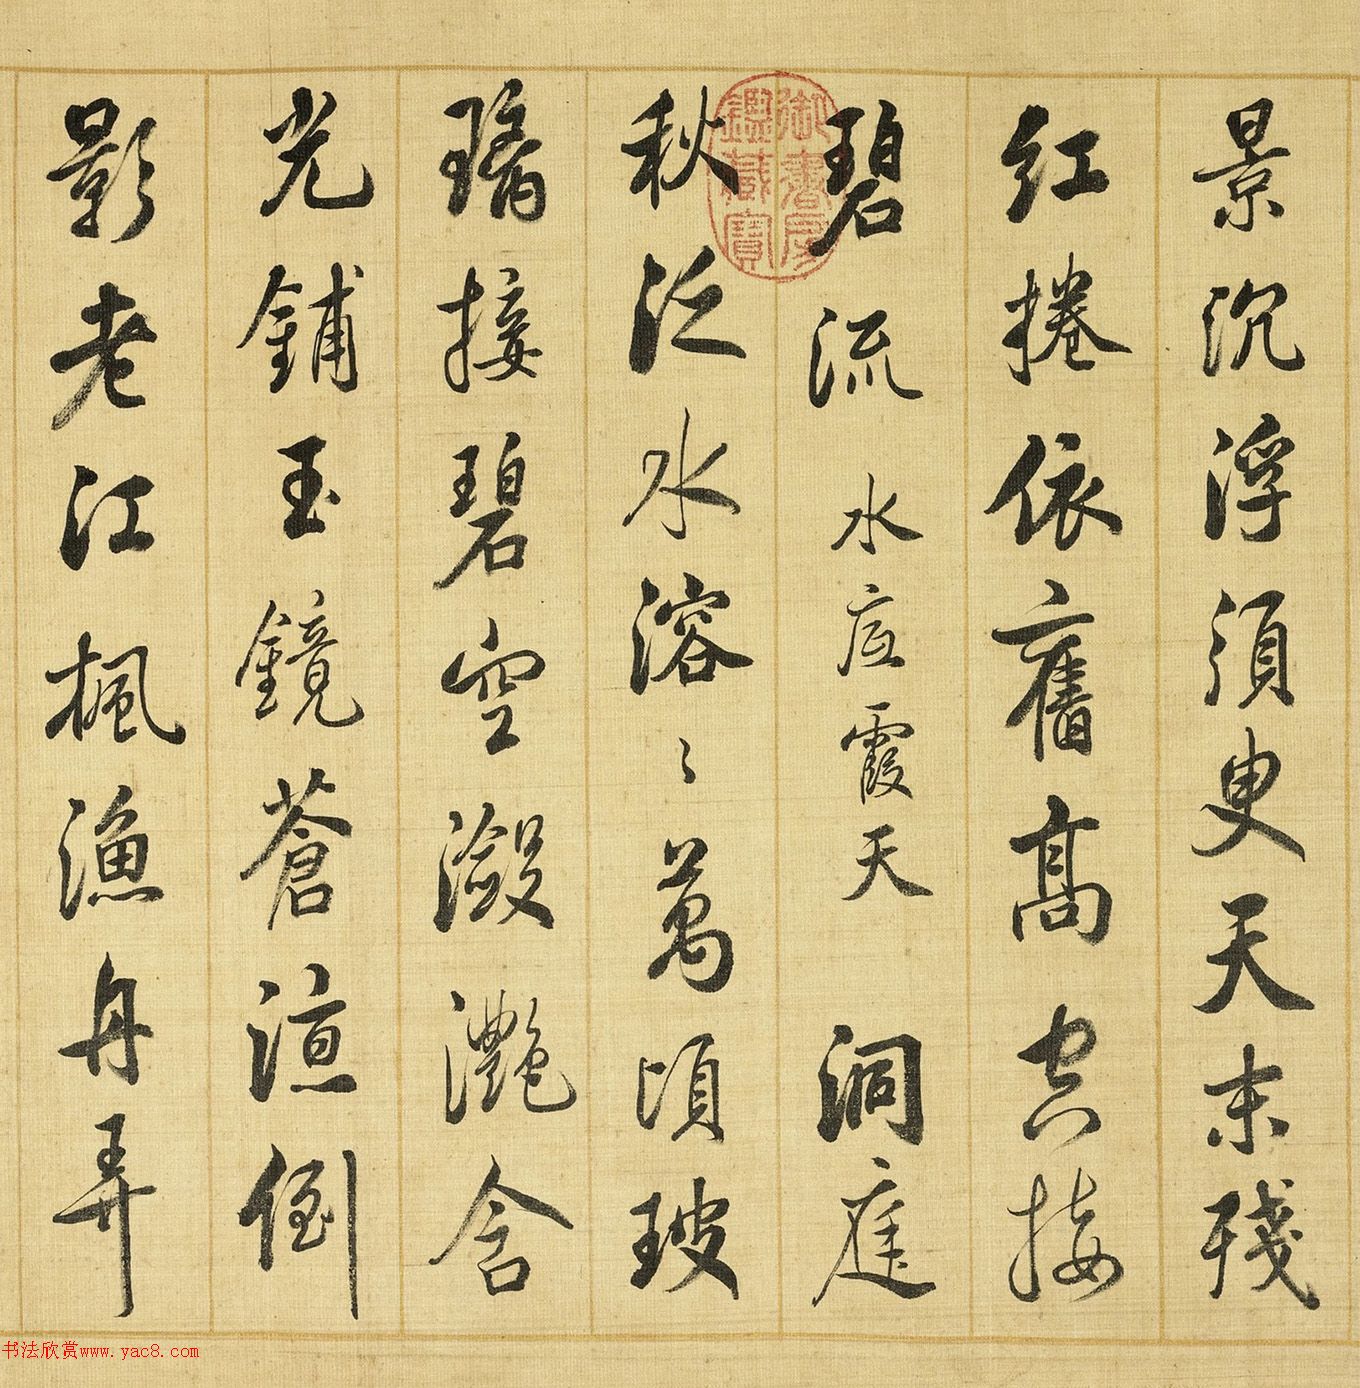 景沉浮須臾天末殘
紅捲依舊高空接
碧流 水底霞天 洞庭
秋泛水溶〻萬頃玻
璃接碧空瀲灩含
光鋪玉鏡蒼倒
影老江楓漁舟弄
御書房鑑藏寶
书法欣赏www.yac8.com